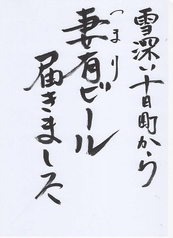 雪深い十日町から
つまり
妻有ビール
届きました